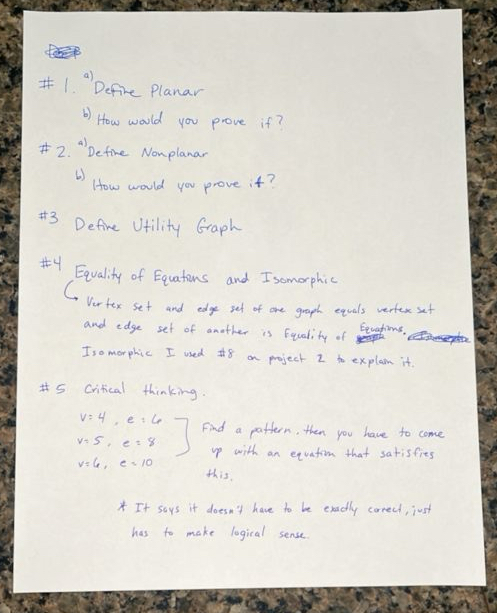 # 1. a) Define Planar
b) How would you prove it?
# 2. a) Define Nonplanar
b) How would you prove it?
#3 Define Utility Graph
#4 Equality of Equations and Isomorphic
Vertex set and edge set of one graph equals vertex set
and edge set of another is Equality of Equations.
Isomorphic I used #8 on project 2 to explain it.
#5 Critical thinking.
v=4, e=6
v=5, e=8
v=6, e=10
Find a pattern, then you have to come
up with an equation that satisfies
this.
* It says it doesn't have to be exactly correct, just
has to make logical sense.